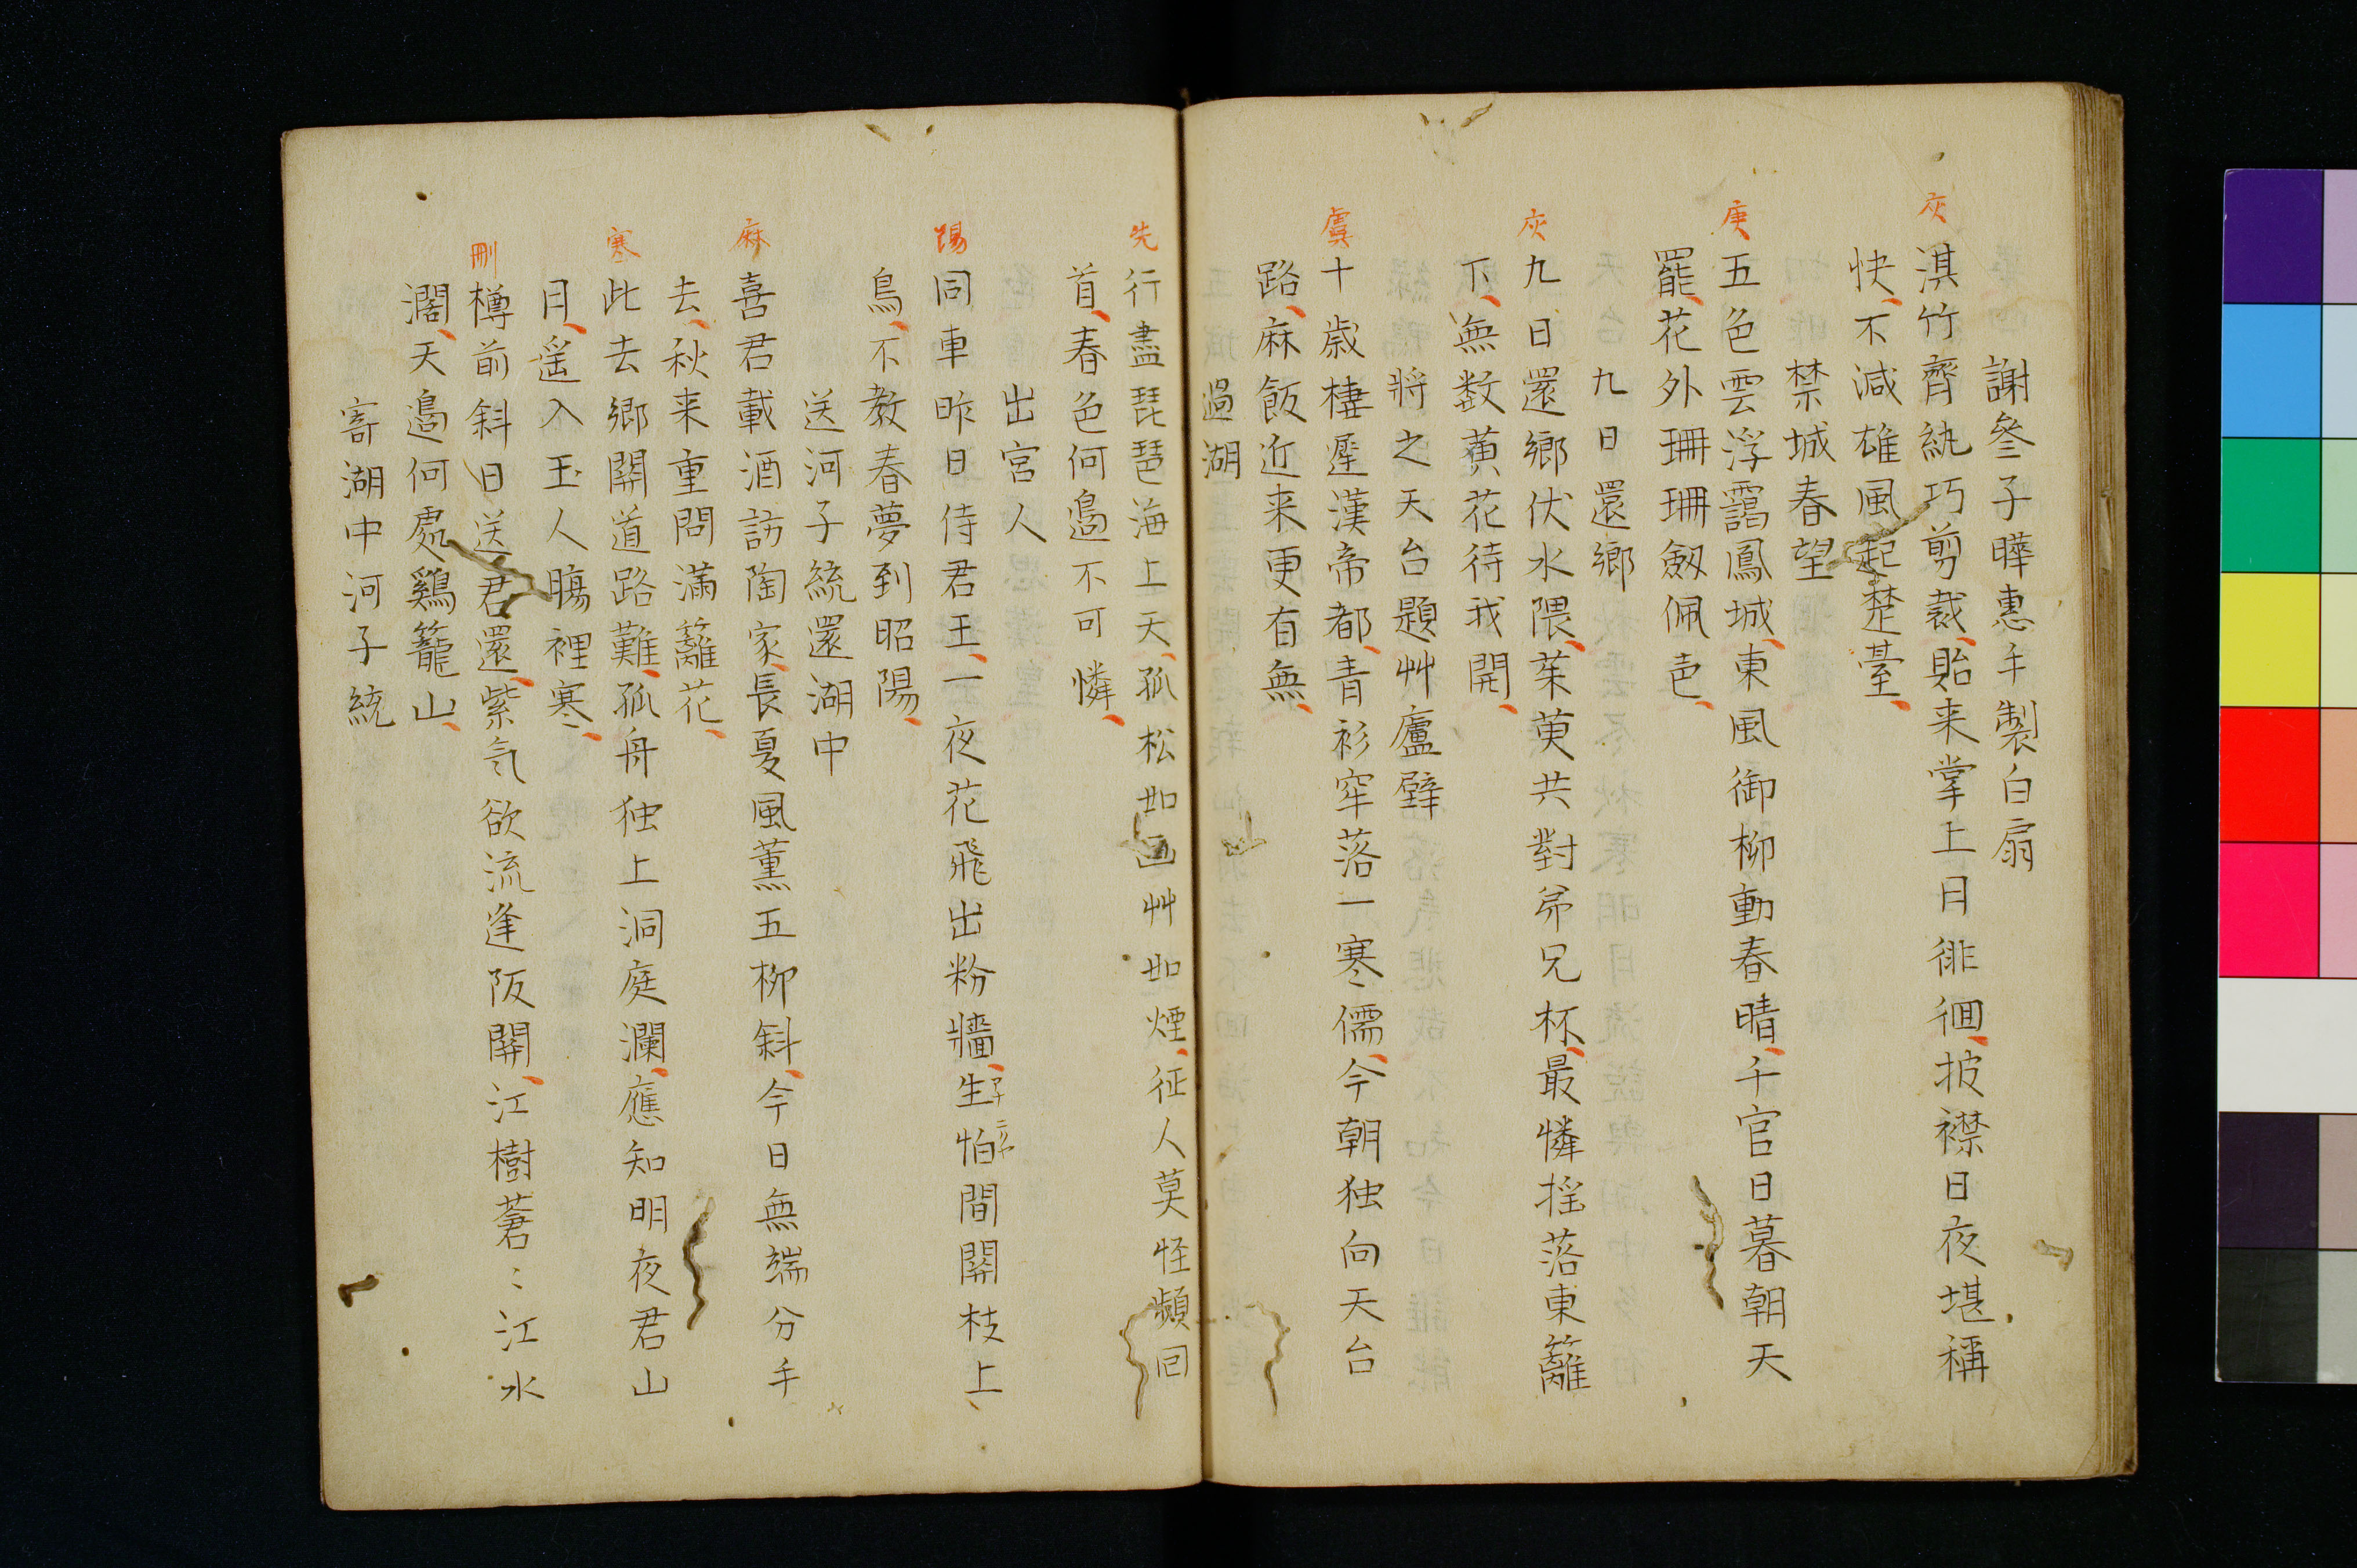 謝叅子曄惠手製白扇
灰
淇竹齊紈巧剪裁、貽来掌上月徘徊、披襟日夜堪稱
快、不減雄風起楚臺、
禁城春望
庚
五色雲浮靄鳳城、東風御柳動春晴、千官日暮朝天
罷、花外珊珊劔佩声、
九日還郷
灰
九日還郷伏水隈、茱萸共對弟兄杯、最憐揺落東籬
下、無数黄花待我開、
將之天台題艸廬壁
虞
十歳棲遲漢帝都、青衫窂落一寒儒、今朝独向天台
路、麻飯近来更有無、
過湖
先
行盡琵琶海上天、孤松如画艸如煙、征人莫怪頻回
首、春色何邉不可憐、
出宮人
陽
同車昨日侍君王、一夜花飛出粉牆、生怕間関枝上
鳥、不教春夢到昭陽、
送河子統還湖中
麻
喜君載酒訪陶家、長夏風薫五柳斜、今日無端分手
去、秋来重問滿籬花、
寒
此去郷関道路難、孤舟独上洞庭瀾、應知明夜君山
月、遥入玉人腸裡寒、
刪
樽前斜日送君還、紫気欲流逢阪関、江樹蒼〻江水
濶、天邉何處鷄籠山、
寄湖中河子統